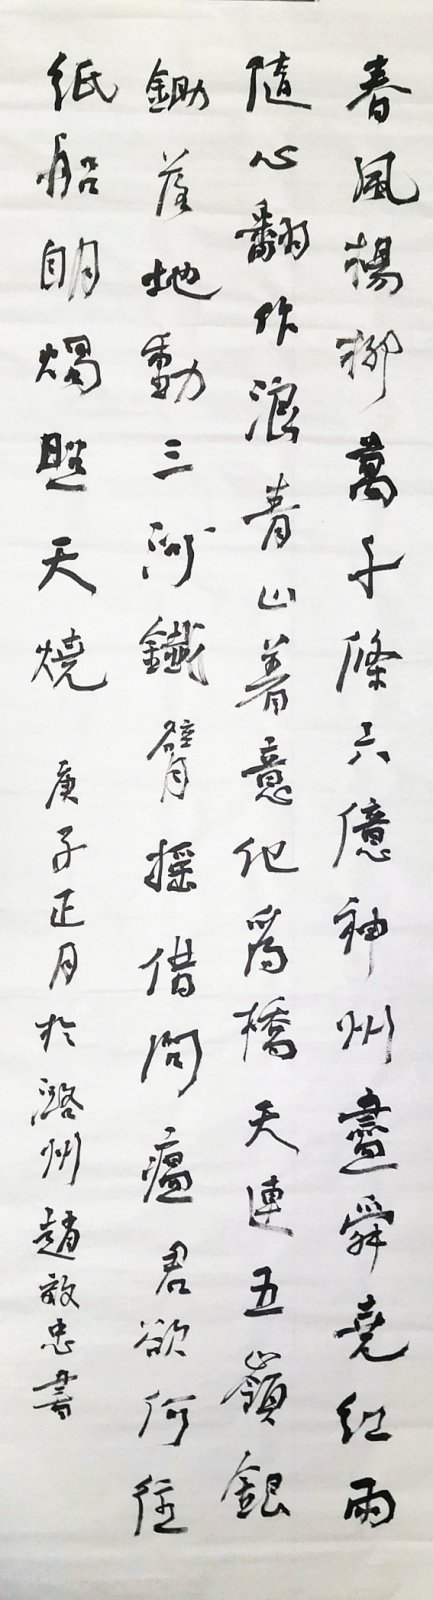 春風楊柳萬千條六億神州盡舜堯紅雨
隨心翻作浪青山着意化爲橋天連五嶺銀
鋤落地動三河鐵臂搖借問瘟君欲何往
紙船明燭照天燒
庚子正月於潞州趙效忠書